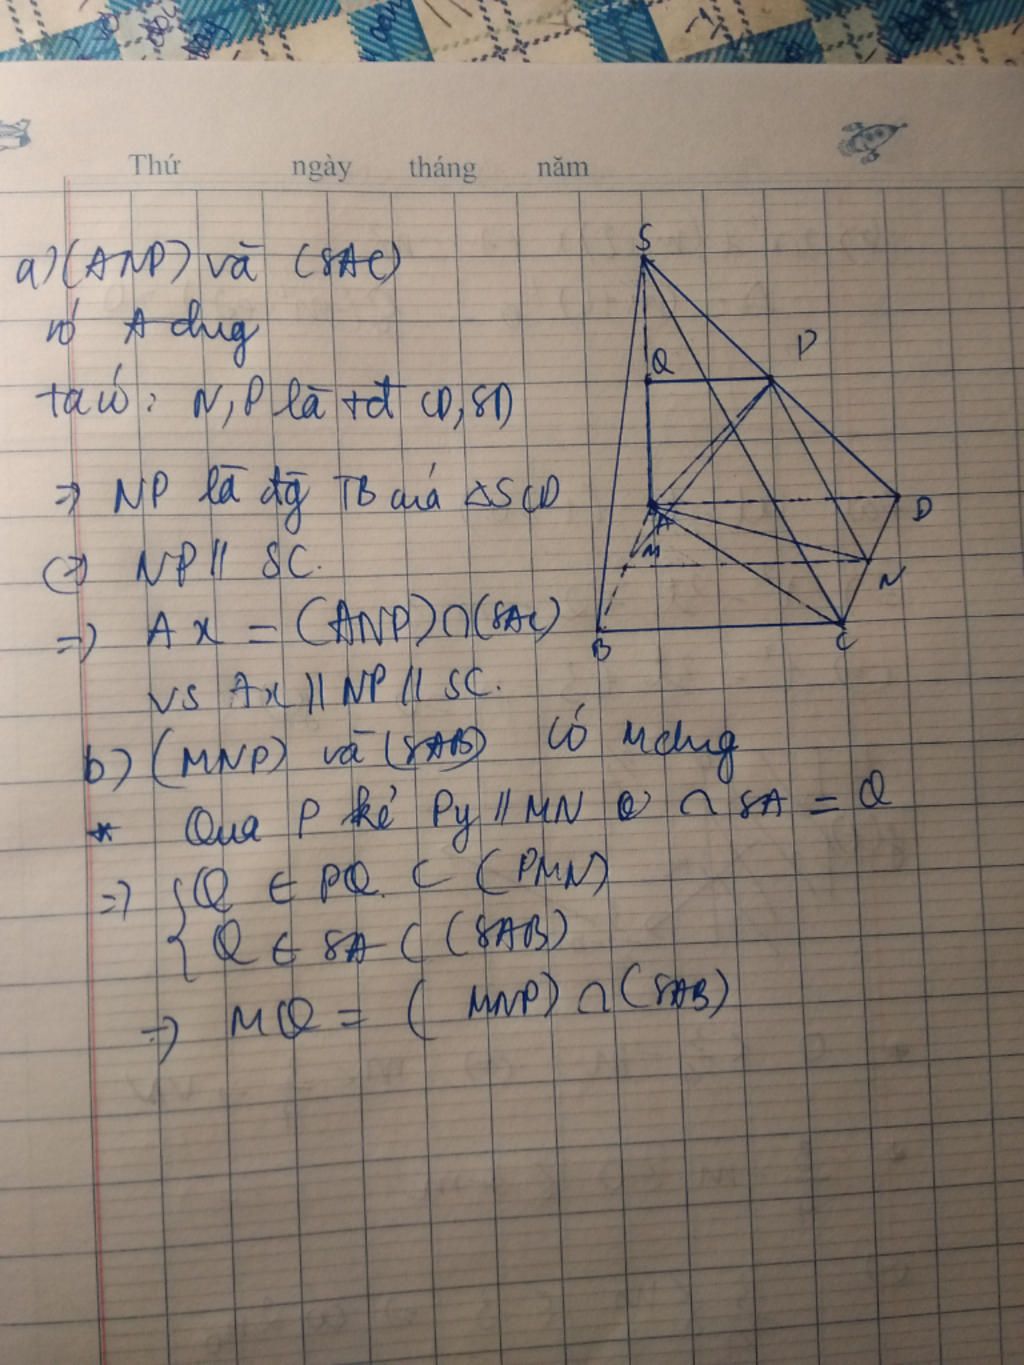 Thứ ngày tháng năm
a) (ANP) và (SAC)
có A chug
ta có: N, P là tđ CD, SD
=> NP là đg TB của △SCD
(=) NP // SC.
=> Ax = (ANP) ∩ (SAC)
vs Ax // NP // SC.
b) (MNP) và (SAB) có M chug
* Qua P kẻ Py // MN ∩ SA = Q
=> { Q ∈ PQ ⊂ (PMN)
{ Q ∈ SA ⊂ (SAB)
=> MQ = ( MNP) ∩ (SAB)
S
Q
P
A
D
M
N
B
C